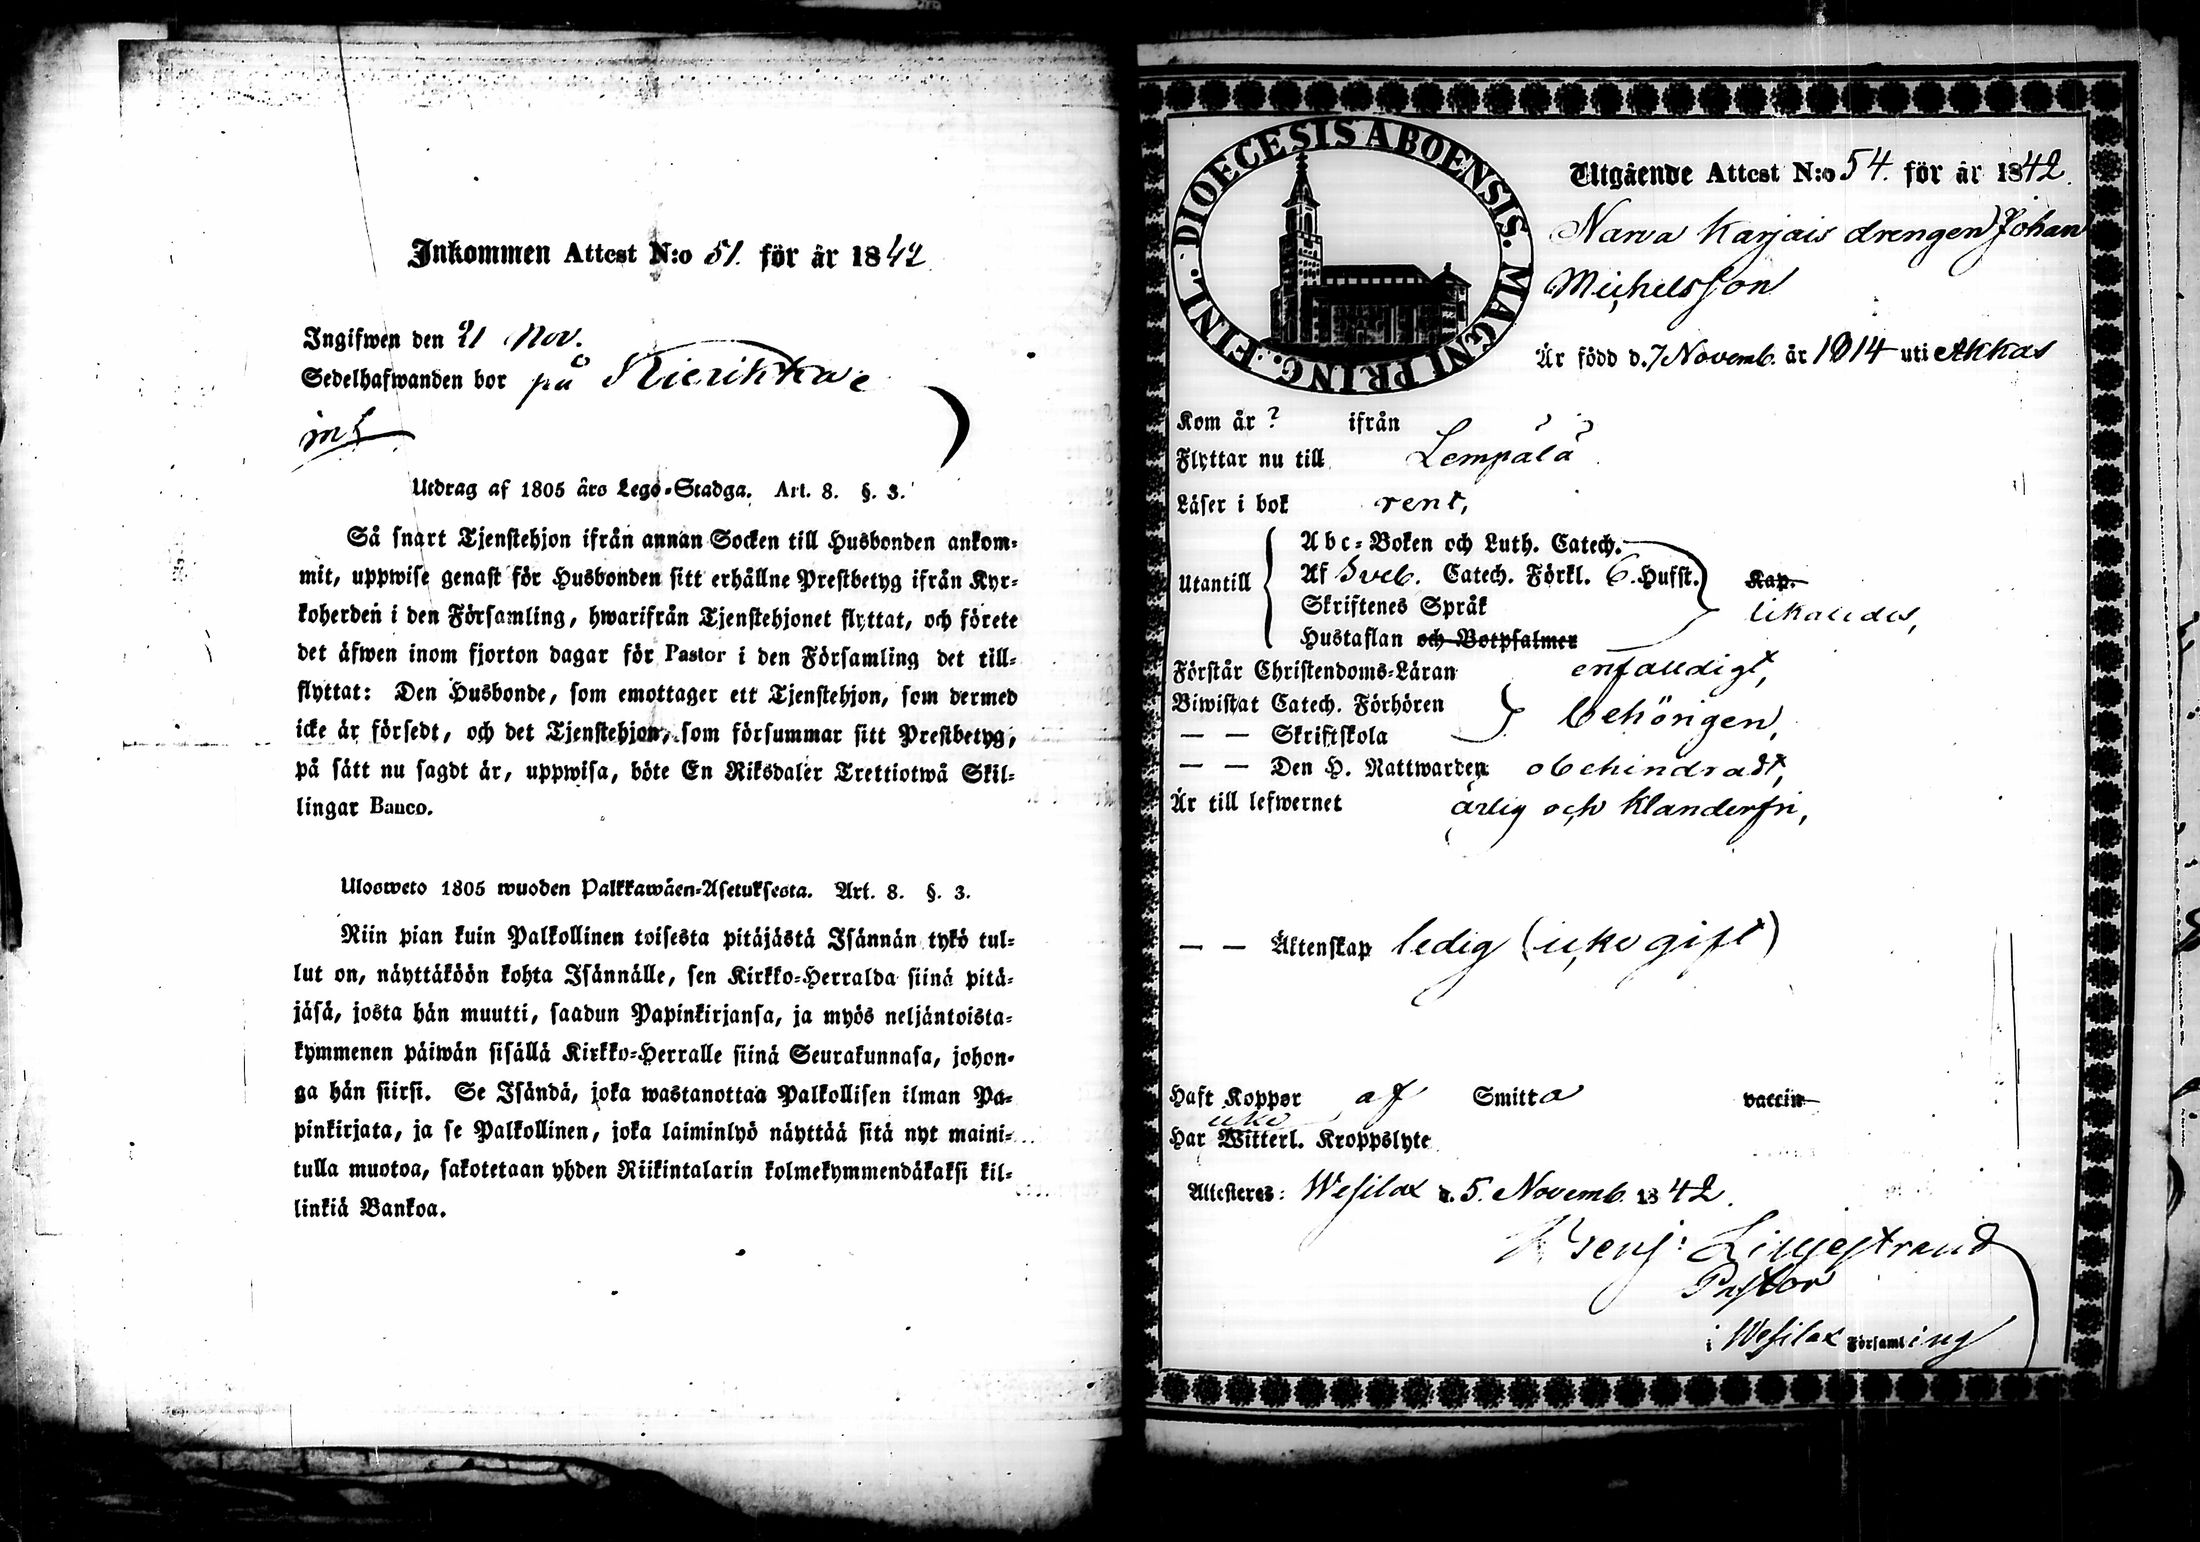 Inkommen Attest N:o 51. för år 1842
Ingifwen den 21 Nov.
Sedelhafwanden bor på
Utdrag af 1805 års Lego-Stadga. Art. 8. §. 3.
Så snart Tjenstehjon ifrån annan Socken till Husbonden ankom-
mit, uppwise genast för Husbonden sitt erhållne Prestbetyg ifrån Kyr-
koherden i den Församling, hwarifrån Tjenstehjonet flyttat, och förete
det äfwen inom fjorton dagar för Pastor i den Församling det till-
flyttat: Den Husbonde, som emottager ett Tjenstehjon, som dermed
icke är försedt, och det Tjenstehjon, som försummar sitt Prestbetyg,
på sätt nu sagdt är, uppwisa, böte En Riksdaler Trettiotwå Skil-
lingar Banco.
Ulosweto 1805 wuoden Palkkawäen-Asetuksesta. Art. 8. §. 3.
Niin pian kuin Palkollinen toisesta pitäjästä Isännän tykö tul-
lut on, näyttäköön kohta Isännälle, sen Kirkko-Herralda siinä pitä-
jäsä, josta hän muutti, saadun Papinkirjansa, ja myös neljäntoista-
kymmenen päiwän sisällä Kirkko-Herralle siinä Seurakunnasa, johon-
ga hän siirsi. Se Isändä, joka wastanottaa Palkollisen ilman Pa-
pinkirjata, ja se Palkollinen, joka laiminlyö näyttää sitä nyt maini-
tulla muotoa, sakotetaan yhden Riikintalarin kolmekymmendäkaksi kil-
linkiä Bankoa.
DIOECESIS ABOENSIS. MAGNI PRINC. FINL.
Utgående Attest N:o 54. för år 1842.
Narva Karjais drengen Johan
Michelsson
Är född d. 7 Novemb. år 1814 uti Akkas
Kom år ? ifrån
Flyttar nu till Lempälä
Läser i bok rent,
Utantill
Abc-Boken och Luth. Catech.
Af Sveb. Catech. Förkl. 6. Hufst. Kap.
Skriftenes Språk likaledes,
Hustaflan och Botpsalmer
Förstår Christendoms-Läran enfaldigt,
Biwistat Catech. Förhören behörigen,
— — Skriftskola
— — Den H. Nattwarden obehindradt,
Är till lefwernet ärlig och klanderfri,
— — Äktenskap ledig (icke gift)
Haft Koppor af Smitta vaccin
icke
Har Witterl. Kroppslyte
Attesteres: Wesilax d. 5. Novemb. 1842.
Benj: Liljestrand
Pastor
i Wesilax Församling